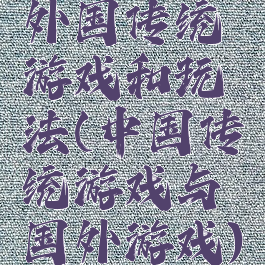 外国传统
游戏和玩
法(中国传
统游戏与
国外游戏)